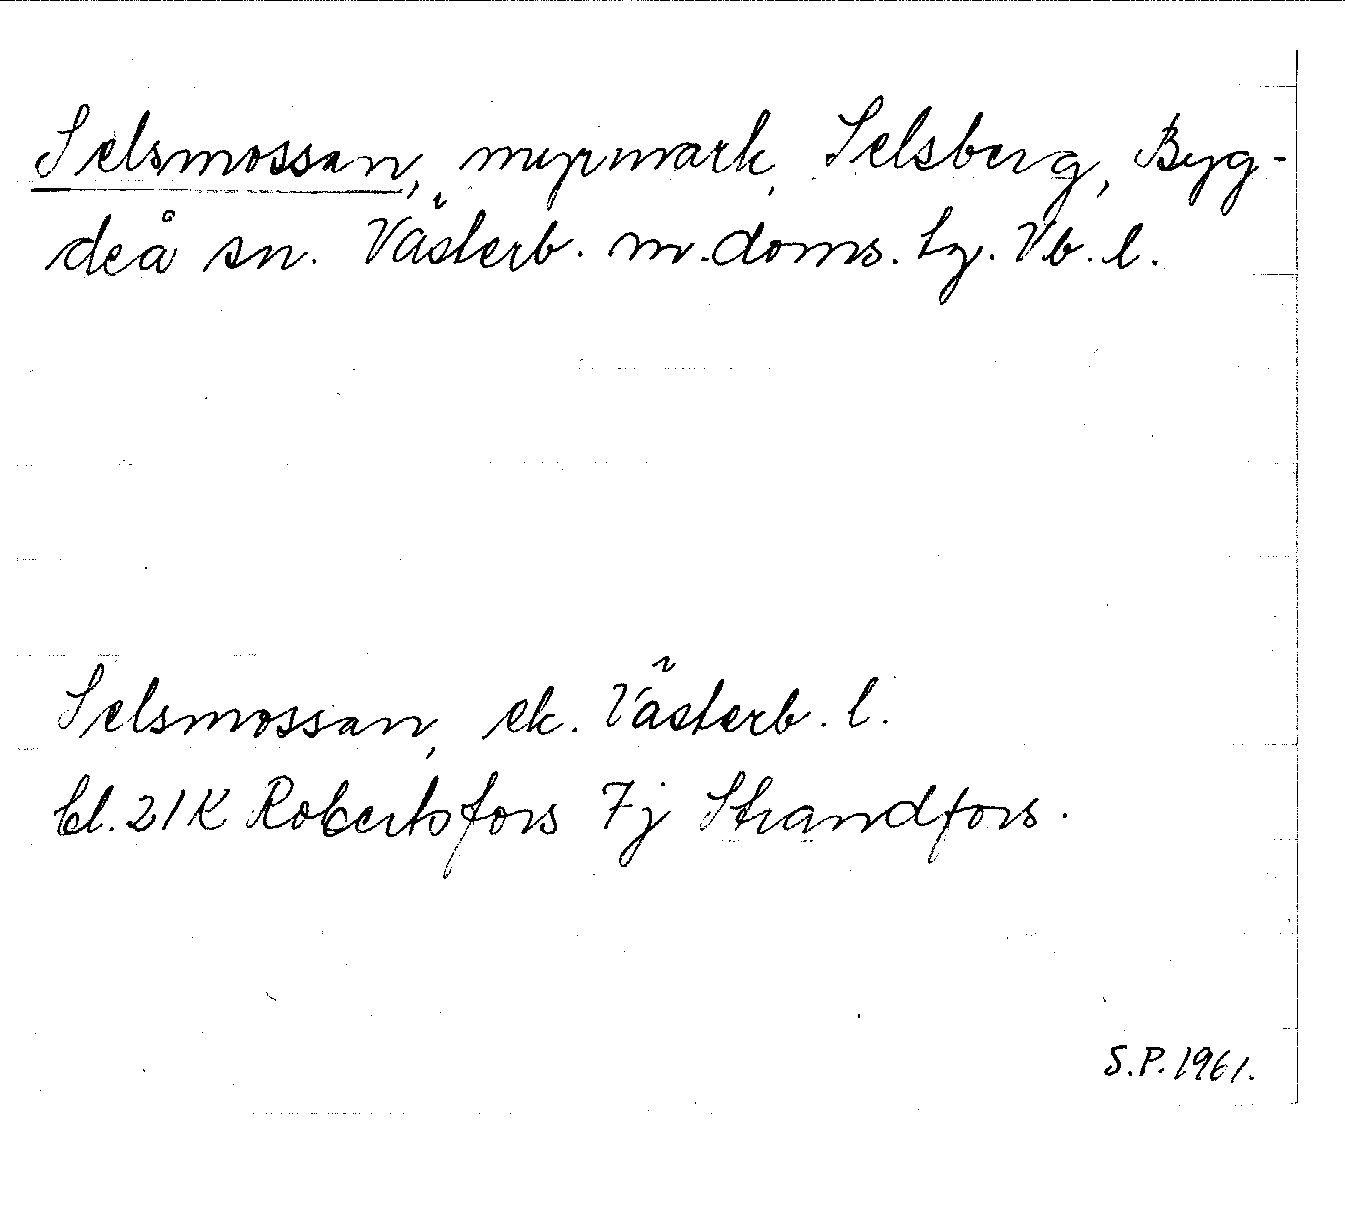 Selsmossan, myrmark, Selsberg, Byg-
deå sn. Västerb. m. doms. tg. Vb. l.
Selsmossan, ek. Västerb. l.
bl. 21K Robertsfors 7j Strandfors.
S.P. 1961.